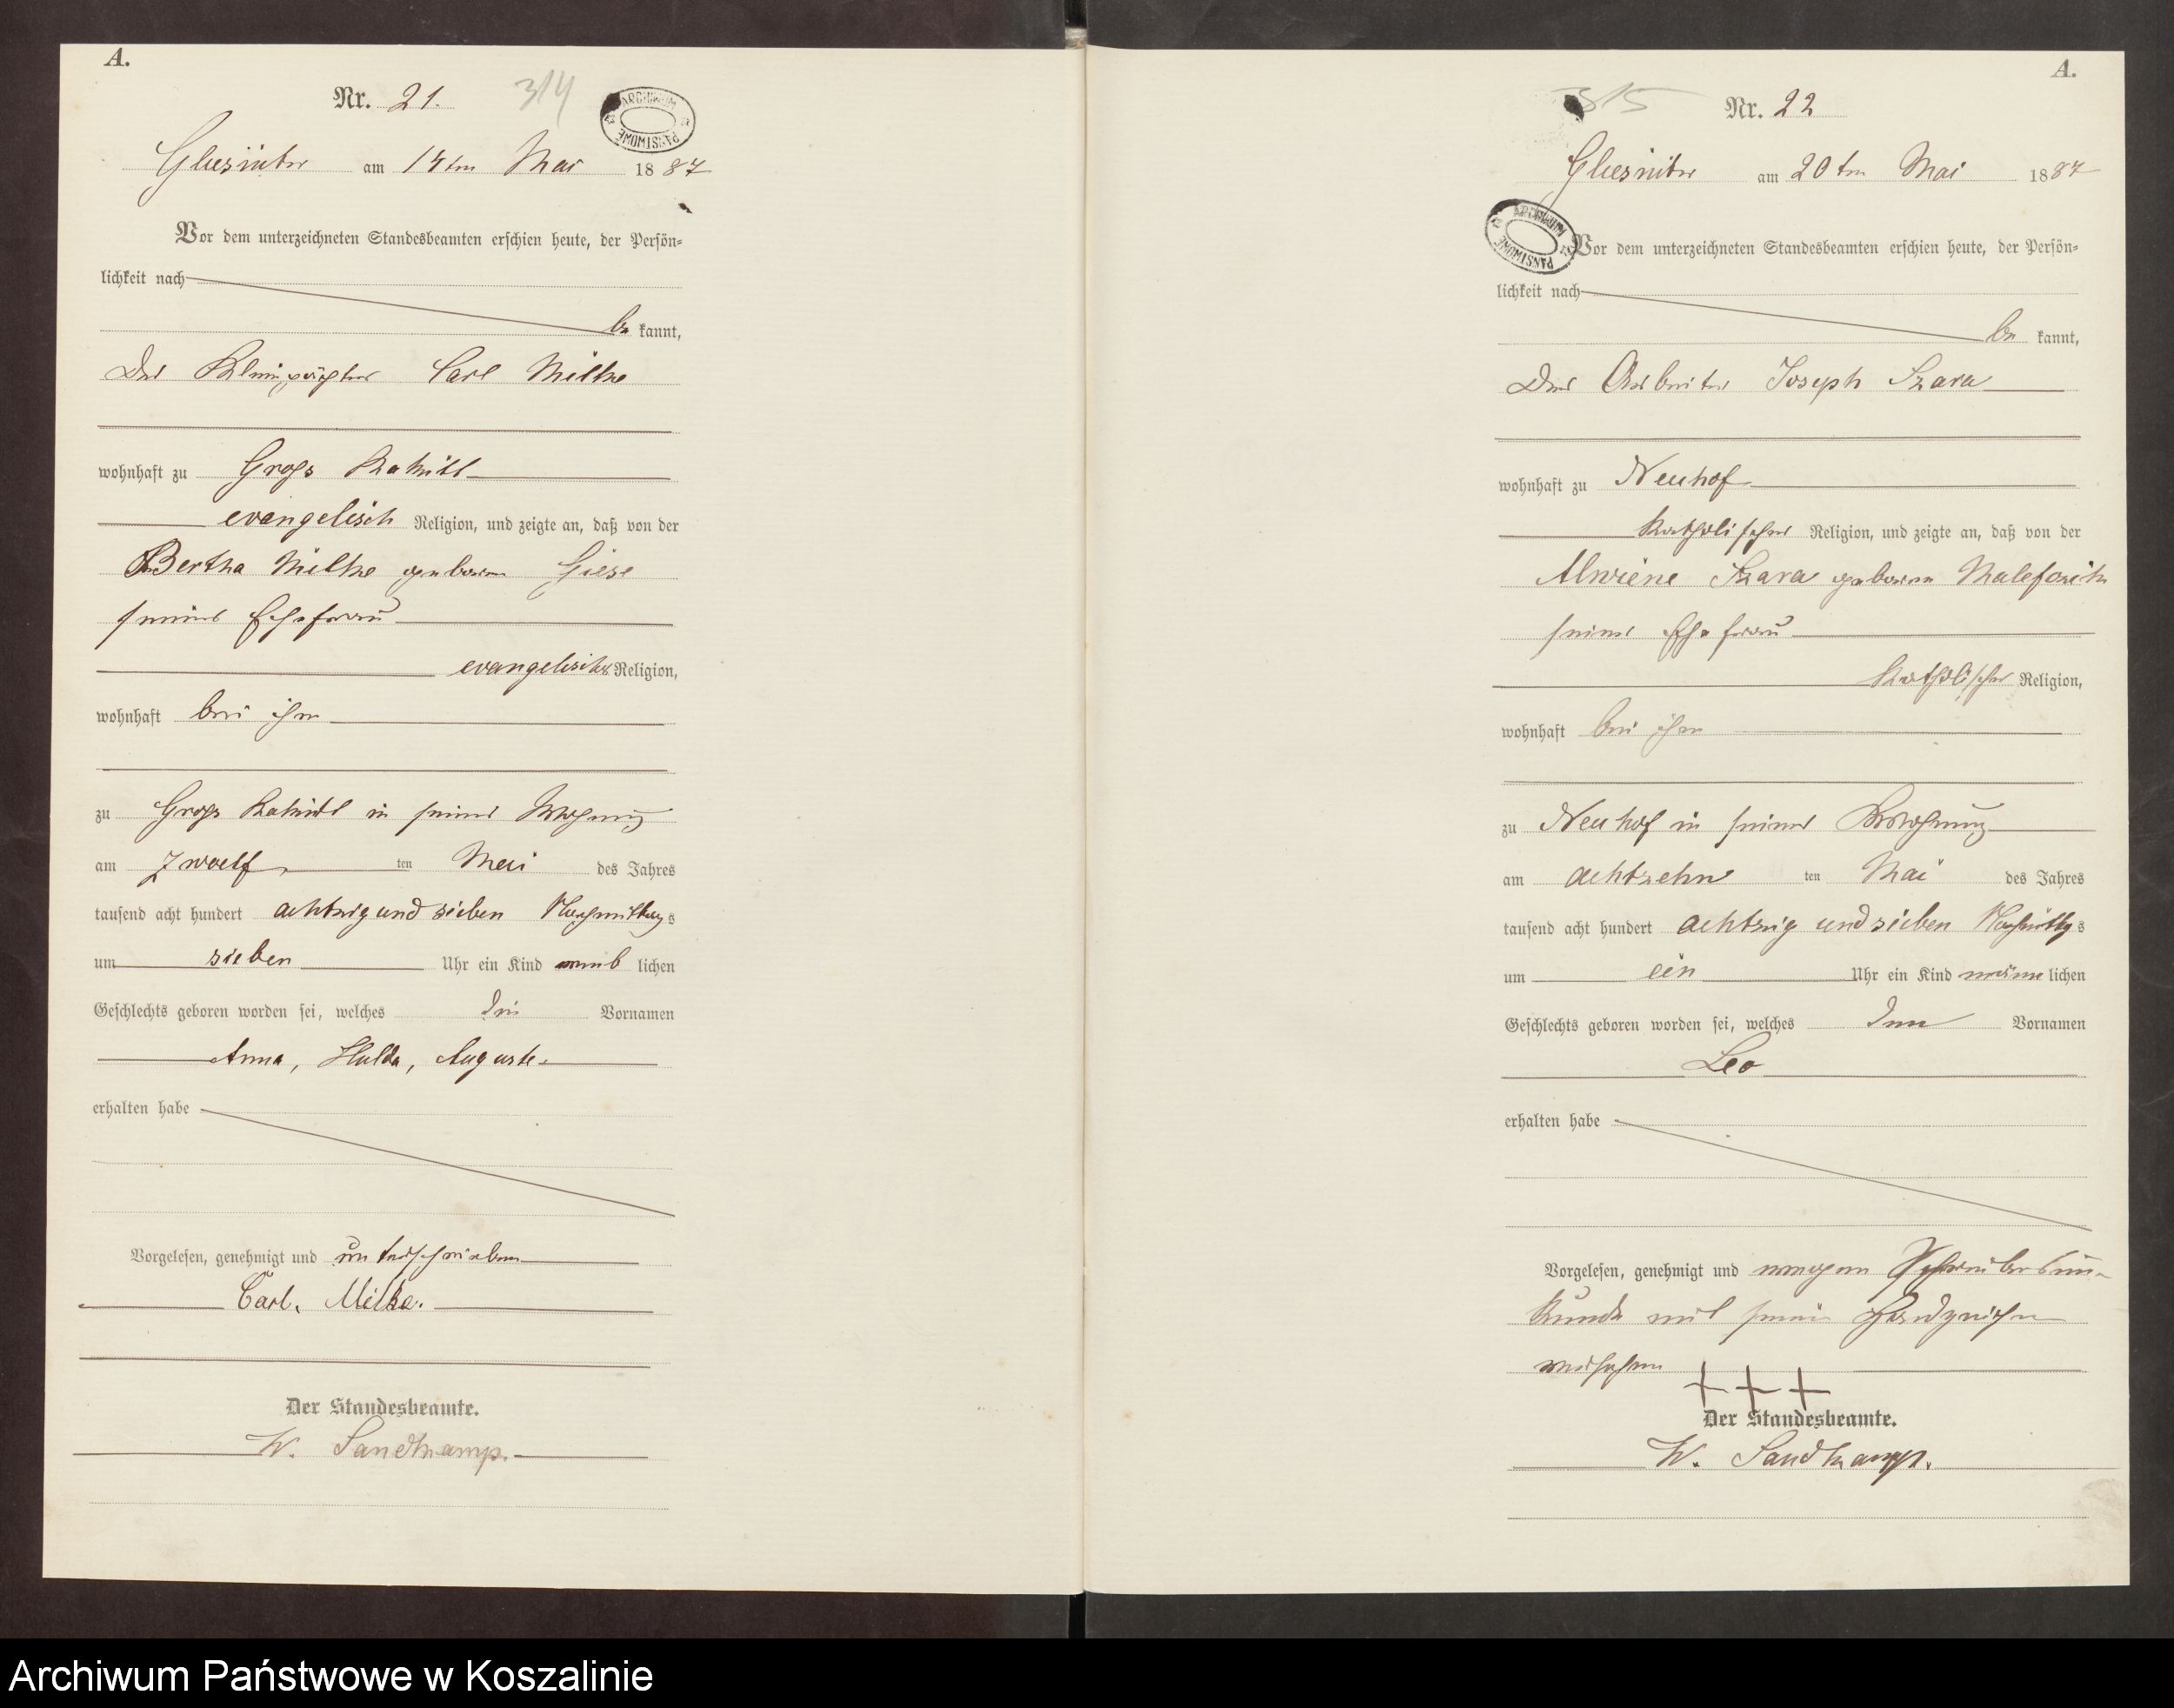 A.
Nr. 21.
314
ARCHIWUM PAŃSTWOWE
am 14ten Mai 1887
Vor dem unterzeichneten Standesbeamten erschien heute, der Persön=
lichkeit nach
be kannt,
Der Carl Milke
wohnhaft zu Gross Rakitt
evangelisch Religion, und zeigte an, daß von der
Bertha Milke geboren Giese
seiner Ehefrau
evangelischer Religion,
wohnhaft bei ihm
zu Gross Rakitt in seiner Wohnung
am zwoelf ten Mai des Jahres
tausend acht hundert achtzig und sieben Nachmittags
um sieben Uhr ein Kind weib lichen
Geschlechts geboren worden sei, welches die Vornamen
Anna, Hulda, Auguste
erhalten habe
Vorgelesen, genehmigt und unterschrieben
Carl. Milke.
Der Standesbeamte.
W. Sandkamp.
A.
315
Nr. 22
am 20ten Mai 1887
ARCHIWUM PAŃSTWOWE
Vor dem unterzeichneten Standesbeamten erschien heute, der Persön=
lichkeit nach
be kannt,
Der Arbeiter Joseph Szara
wohnhaft zu Neuhof
katholischer Religion, und zeigte an, daß von der
Alwiene Szara geboren
seiner Ehefrau
katholischer Religion,
wohnhaft bei ihm
zu Neuhof in seiner Wohnung
am achtzehn ten Mai des Jahres
tausend acht hundert achtzig und sieben Nachmittags
um ein Uhr ein Kind männ lichen
Geschlechts geboren worden sei, welches den Vornamen
Leo
erhalten habe
Vorgelesen, genehmigt und wegen Schreibensun-
kunde mit seinem Handzeichen
versehen
+ + +
Der Standesbeamte.
W. Sandkamp.
Archiwum Państwowe w Koszalinie